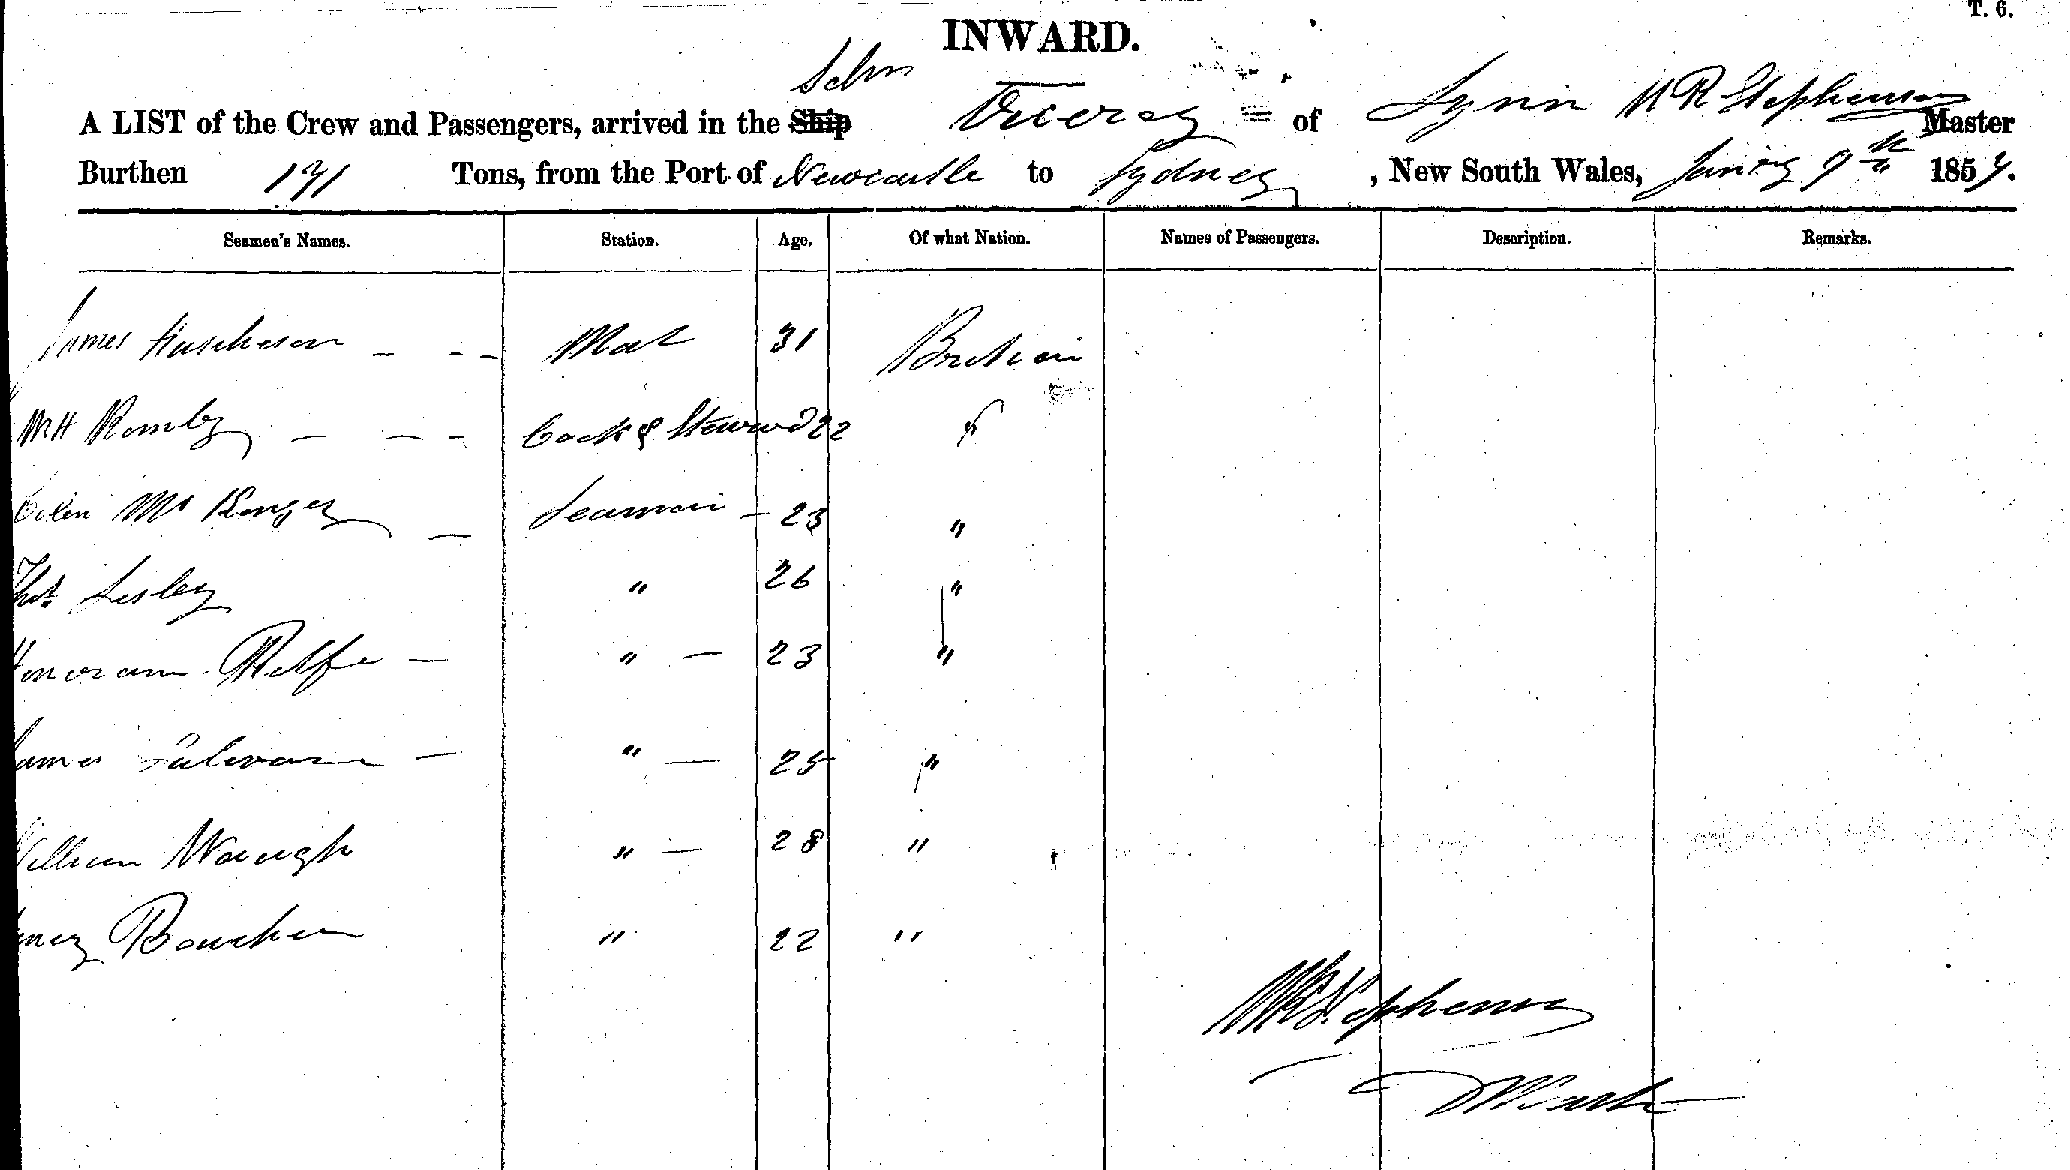 T. 6.
INWARD.
Schr
A LIST of the Crew and Passengers, arrived in the Ship Viceroy = of Lynn W R Stephenson Master
Burthen 131 Tons, from the Port of Newcastle to Sydney, New South Wales, 9th 185
Seamen's Names. Station. Age. Of what Nation. Names of Passengers. Description. Remarks.
James Hutcheson - - - Mat 31
WH - - - Cook & Steward 22 "
Colin Seaman - 23 "
Thos Lesley " 26 "
Rolfe - " - 23 "
James Sulivan - " - 25 "
William Waugh " - 28 "
" 22 "
WR Stephenson
Master